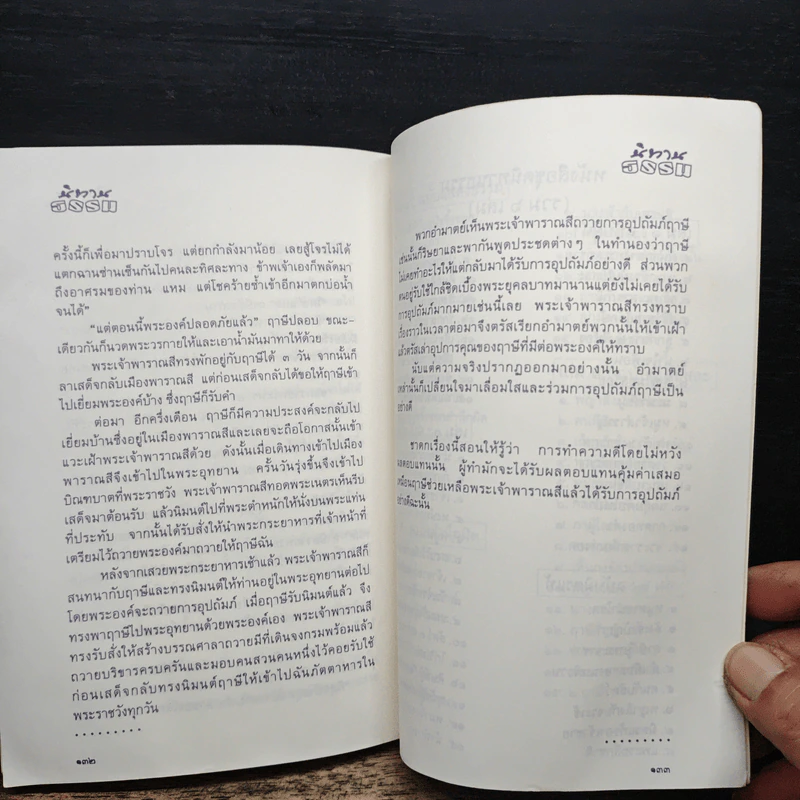 นิทาน
ธรรม
ครั้งนี้ก็เพื่อมาปราบโจร แต่ยกกำลังมาน้อย เลยสู้โจรไม่ได้
แตกฉานซ่านเซ็นกันไปคนละทิศละทาง ข้าพเจ้าเองก็พลัดมา
ถึงอาศรมของท่าน แหม แต่โชคร้ายซ้ำเข้าอีกมาตกบ่อน้ำ
จนได้”
“แต่ตอนนี้พระองค์ปลอดภัยแล้ว” ฤาษีปลอบ ขณะ-
เดียวกันก็นวดพระวรกายให้และเอาน้ำมันมาทาให้ด้วย
พระเจ้าพาราณสีทรงพักอยู่กับฤาษีได้ ๓ วัน จากนั้นก็
ลาเสด็จกลับเมืองพาราณสี แต่ก่อนเสด็จกลับได้ขอให้ฤาษีเข้า
ไปเยี่ยมพระองค์บ้าง ซึ่งฤาษีก็รับคำ
ต่อมา อีกครึ่งเดือน ฤาษีก็มีความประสงค์จะกลับไป
เยี่ยมบ้านซึ่งอยู่ในเมืองพาราณสีและเลยจะถือโอกาสนั้นเข้า
แวะเฝ้าพระเจ้าพาราณสีด้วย ดังนั้นเมื่อเดินทางเข้าไปเมือง
พาราณสีจึงเข้าไปในพระอุทยาน ครั้นวันรุ่งขึ้นจึงเข้าไป
บิณฑบาตที่พระราชวัง พระเจ้าพาราณสีทอดพระเนตรเห็นรีบ
เสด็จมาต้อนรับ แล้วนิมนต์ไปที่พระตำหนักให้นั่งบนพระแท่น
ที่ประทับ จากนั้นได้รับสั่งให้นำพระกระยาหารที่เจ้าหน้าที่
เตรียมไว้ถวายพระองค์มาถวายให้ฤาษีฉัน
หลังจากเสวยพระกระยาหารเช้าแล้ว พระเจ้าพาราณสีก็
สนทนากับฤาษีและทรงนิมนต์ให้ท่านอยู่ในพระอุทยานต่อไป
โดยพระองค์จะถวายการอุปถัมภ์ เมื่อฤาษีรับนิมนต์แล้ว จึง
ทรงพาฤาษีไปพระอุทยานด้วยพระองค์เอง พระเจ้าพาราณสี
ทรงรับสั่งให้สร้างบรรณศาลาถวายมีที่เดินจงกรมพร้อมแล้ว
ถวายบริขารครบครันและมอบคนสวนคนหนึ่งไว้คอยรับใช้
ก่อนเสด็จกลับทรงนิมนต์ฤาษีให้เข้าไปฉันภัตตาหารใน
พระราชวังทุกวัน
.........
๑๓๒
นิทาน
ธรรม
พวกอำมาตย์เห็นพระเจ้าพาราณสีถวายการอุปถัมภ์ฤาษี
เช่นนั้นก็ริษยาและพากันพูดประชดต่างๆ ในทำนองว่าฤาษี
ไม่เคยทำอะไรให้แต่กลับมาได้รับการอุปถัมภ์อย่างดี ส่วนพวก
ตนอยู่รับใช้ใกล้ชิดเบื้องพระยุคลบาทมานานแต่ยังไม่เคยได้รับ
การอุปถัมภ์มากมายเช่นนี้เลย พระเจ้าพาราณสีทรงทราบ
เรื่องราวในเวลาต่อมาจึงตรัสเรียกอำมาตย์พวกนั้นให้เข้าเฝ้า
แล้วตรัสเล่าอุปการคุณของฤาษีที่มีต่อพระองค์ให้ทราบ
นับแต่ความจริงปรากฏออกมาอย่างนั้น อำมาตย์
เหล่านั้นก็เปลี่ยนใจมาเลื่อมใสและร่วมการอุปถัมภ์ฤาษีเป็น
อย่างดี
ชาดกเรื่องนี้สอนให้รู้ว่า การทำความดีโดยไม่หวัง
ผลตอบแทนนั้น ผู้ทำมักจะได้รับผลตอบแทนคุ้มค่าเสมอ
เหมือนฤาษีช่วยเหลือพระเจ้าพาราณสีแล้วได้รับการอุปถัมภ์
อย่างดีฉะนั้น
.........
๑๓๓